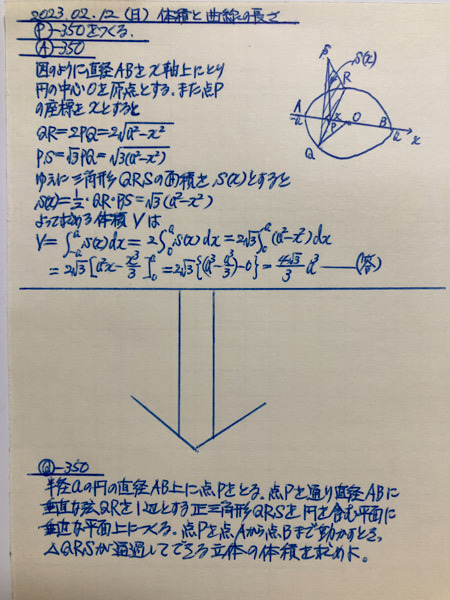 2023.02.12 (日) 体積と曲線の長さ
Ⓟ-350をつくる.
Ⓐ-350
図のように直径ABをx軸上にとり
円の中心Oを原点とする. また点P
の座標をxとすると
QR=2PQ=2√(a²-x²)
PS=√3PQ=√3(a²-x²)
ゆえに三角形QRSの面積をS(x)とすると
S(x)=1/2・QR・PS=√3(a²-x²)
よって求める体積Vは
V=∫_{-a}^{a}S(x)dx=2∫_0^a S(x)dx=2√3∫_0^a(a²-x²)dx
=2√3[a²x-x³/3]_0^a=2√3{(a³-a³/3)-0}=4√3/3 a³ ——(答)
S
S(x)
R
A
-a
x
O
B
a
x
P
Q
Ⓠ-350
半径aの円の直径AB上に点Pをとる. 点Pを通り直径ABに
垂直な弦QRを1辺とする正三角形QRSを円を含む平面に
垂直な平面上につくる. 点Pを点Aから点Bまで動かすとき,
△QRSが通過してできる立体の体積を求めよ.